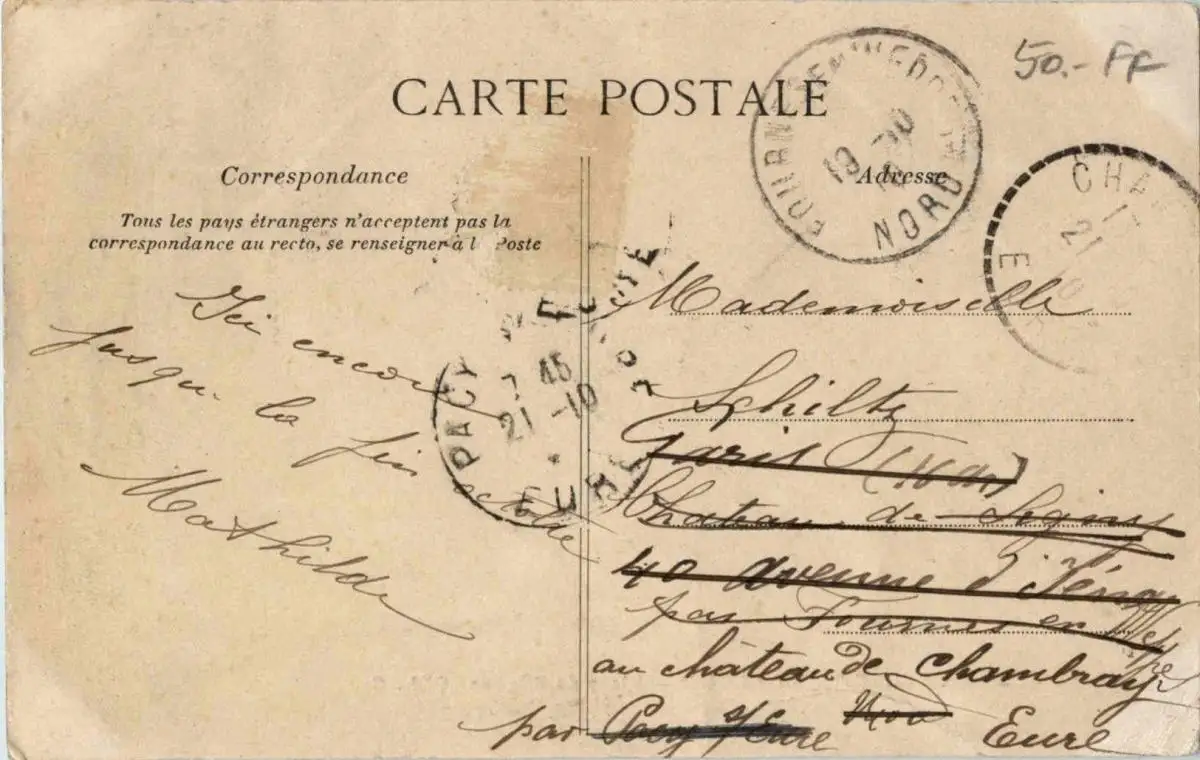 50.- FF
CARTE POSTALE
Correspondance
Adresse
Tous les pays étrangers n'acceptent pas la
correspondance au recto, se renseigner à l Poste
FOURNES-EN-WEPPES
19 -10
NORD
CHA
21
E
PACY EURE
45
21 -10
EURE
Ici encore
jusqu. la fin
Mathilde
Mademoiselle
Schiltz
Paris
Chateau de
40 avenue d'Iéna
par Fournes en Weppes
au château de Chambray
par Pacy s/Eure Eure